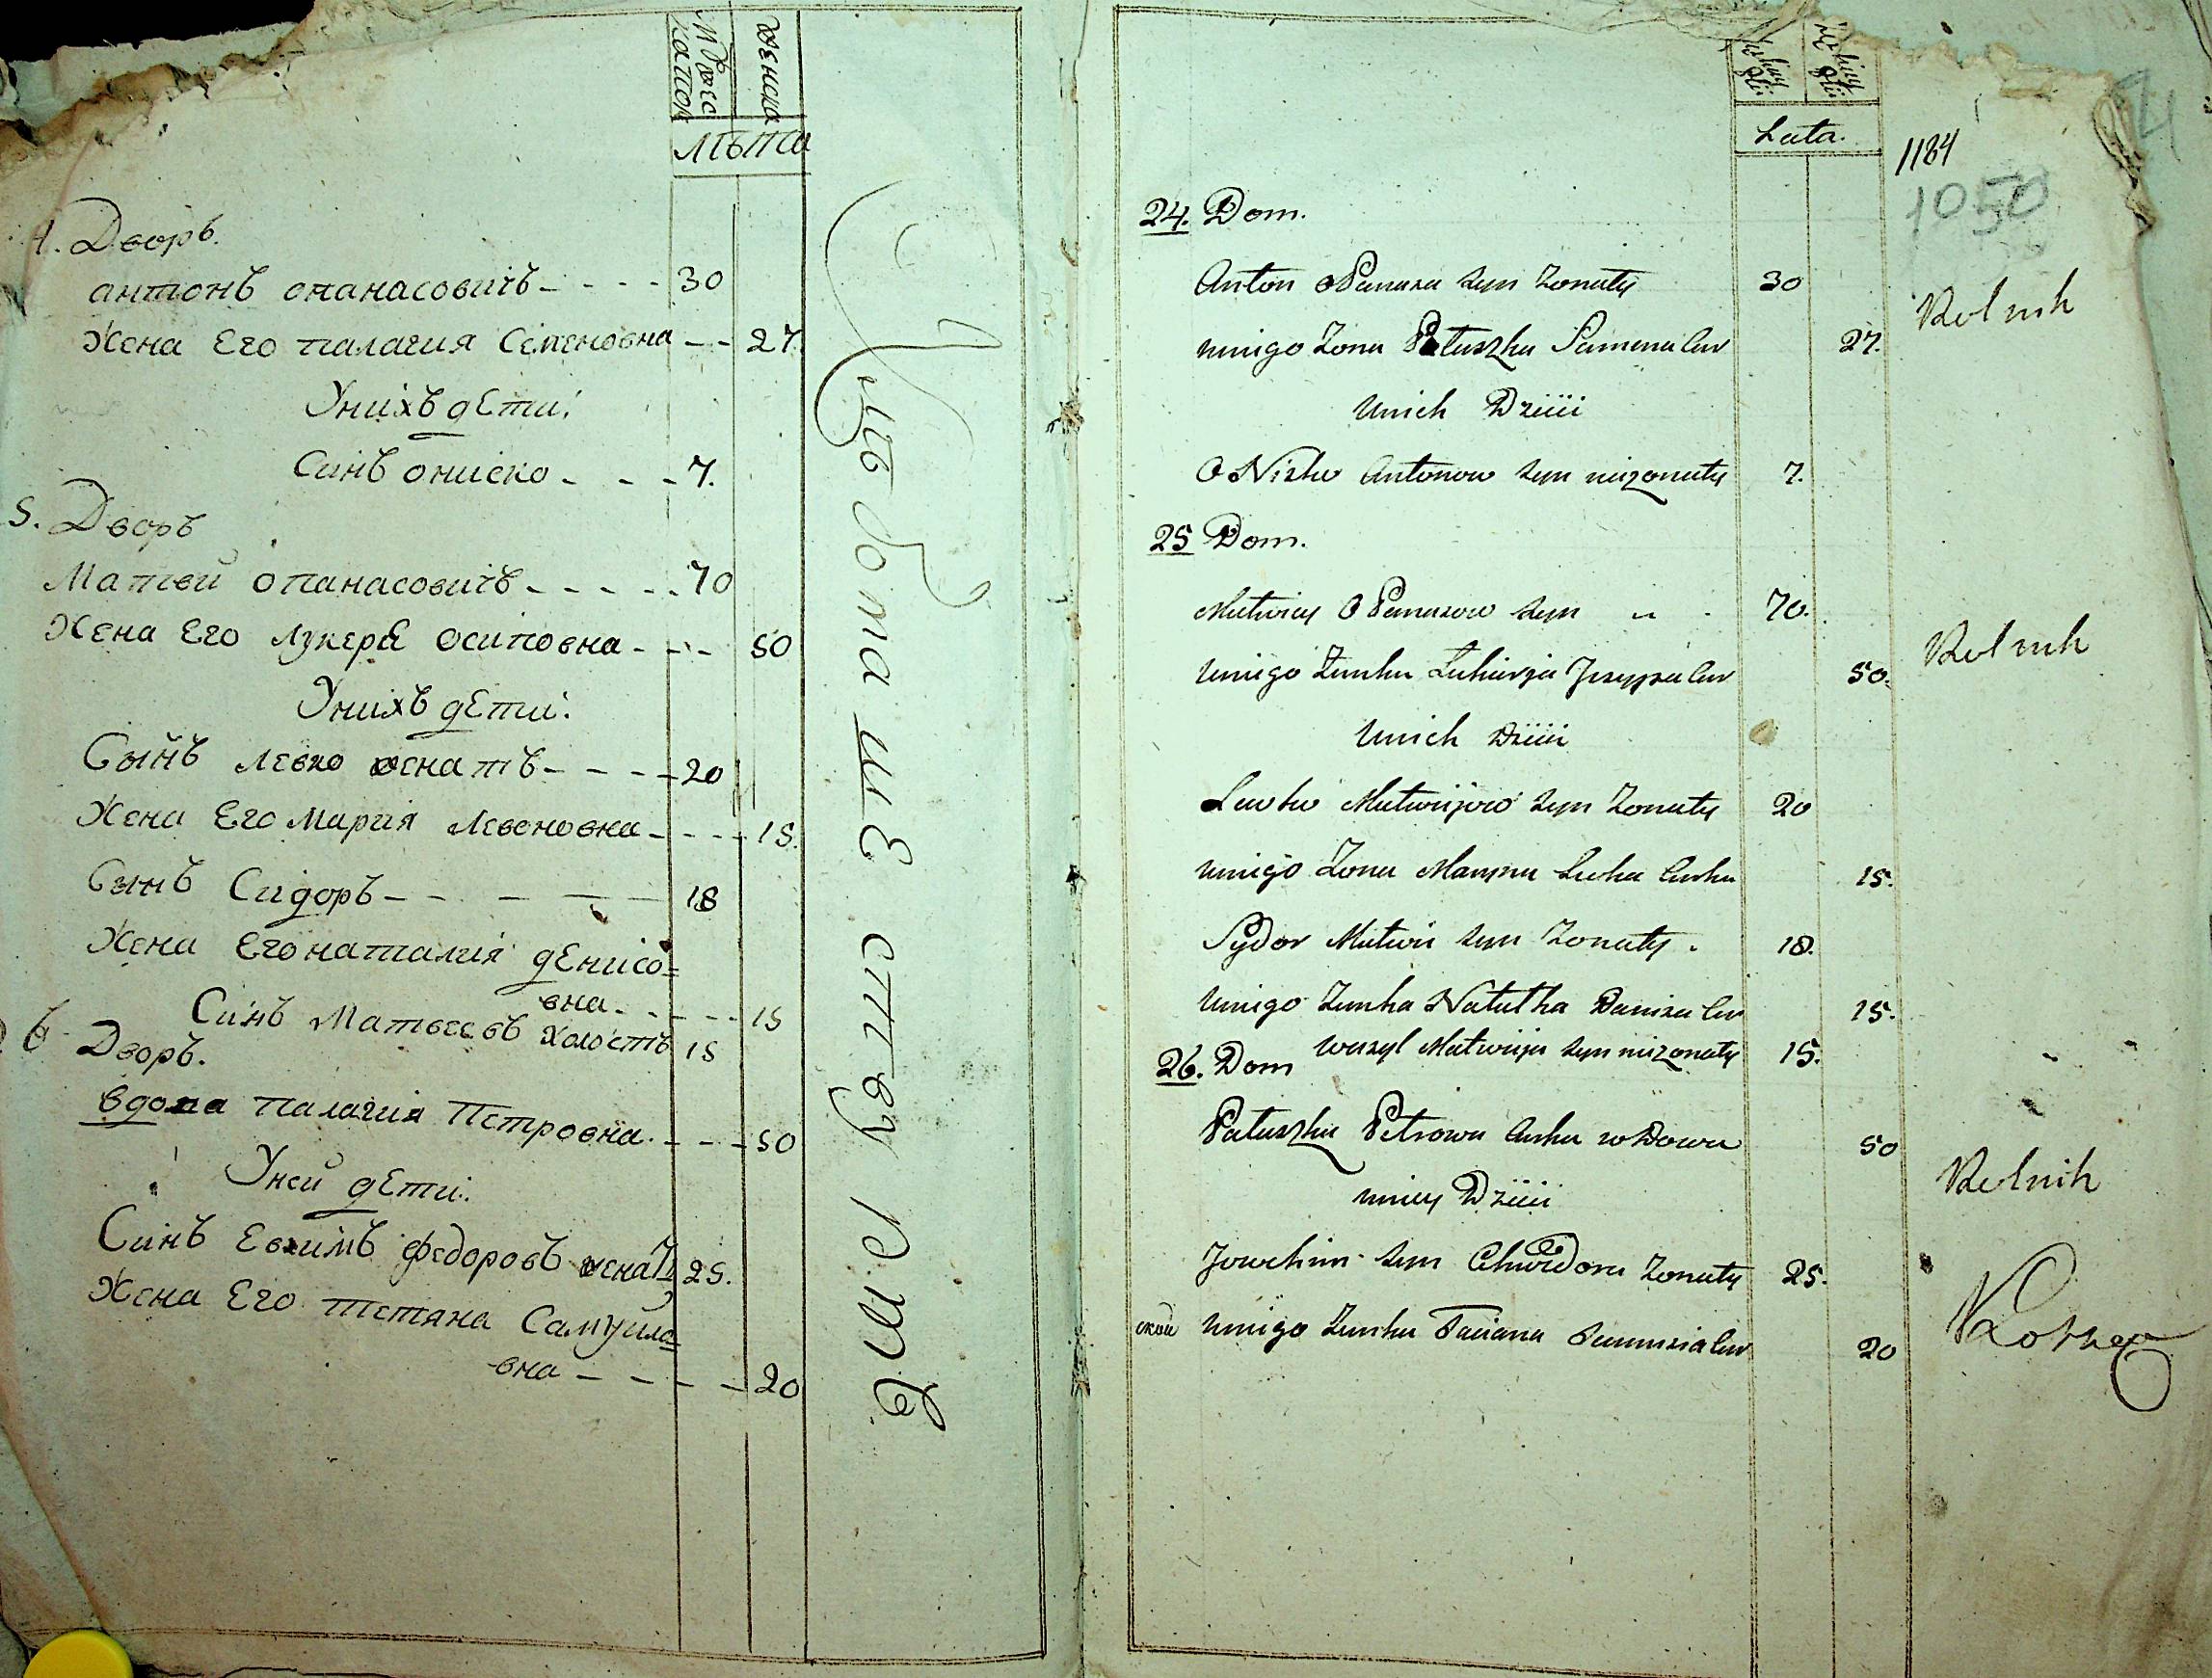 Мужеска
женска
лѣта
4. Дворъ.
антонъ опанасовичъ - - - - 30
Жена Его палагия Семеновна - - 27.
Унихъ дЕти:
Синъ ониско - - - 7.
5. Дворъ
Матвей опанасовичъ - - - - - 70
Жена Его лукерЕ осиповна - - - 50
Унихъ дЕти:
Сынъ левко женатъ - - - - 20
Жена Его Мария левоновна - - - - 15.
Сынъ Сидоръ - - - - - 18
Жена Его наталия дЕнисо=
вна - - - - 15
Синъ Матвеевъ холостъ 15
6 Дворъ.
вдова палагия Петровна - - - 50
Уней дЕти:
Синъ Евхимъ федоровъ женатъ 25.
Жена Его тетяна Самуило=
вна - - - - 20
Lata.
1184
1050
24. Dom.
Anton oPanasa syn Zonaty 30
Rolnik
unigo Zona Patuszka Samena Cur 27.
Unich Dziiii
O Nisko Antonow syn niezonaty 7.
25 Dom.
Matwiey O Panasow syn 70.
Rolnik
Unigo Zunka Lukierja Jozypa Cur 50.
Unich Dziiii
Lewko Matwijow syn Zonaty 20
unigo Zona Maryna Lewka Curka 15.
Sydor Matwi syn Zonaty. 18.
Unigo Zunka Natatka Danisa Cur 15.
Wasyl Matwija syn niezonaty 15.
26. Dom
Patuszka Petrowa Curka wDowa 50
Rolnik
uniey Dziiii
Jowchim syn Chwedora Zonaty 25.
ской unigo Zunka Taciana Samuila Cur 20